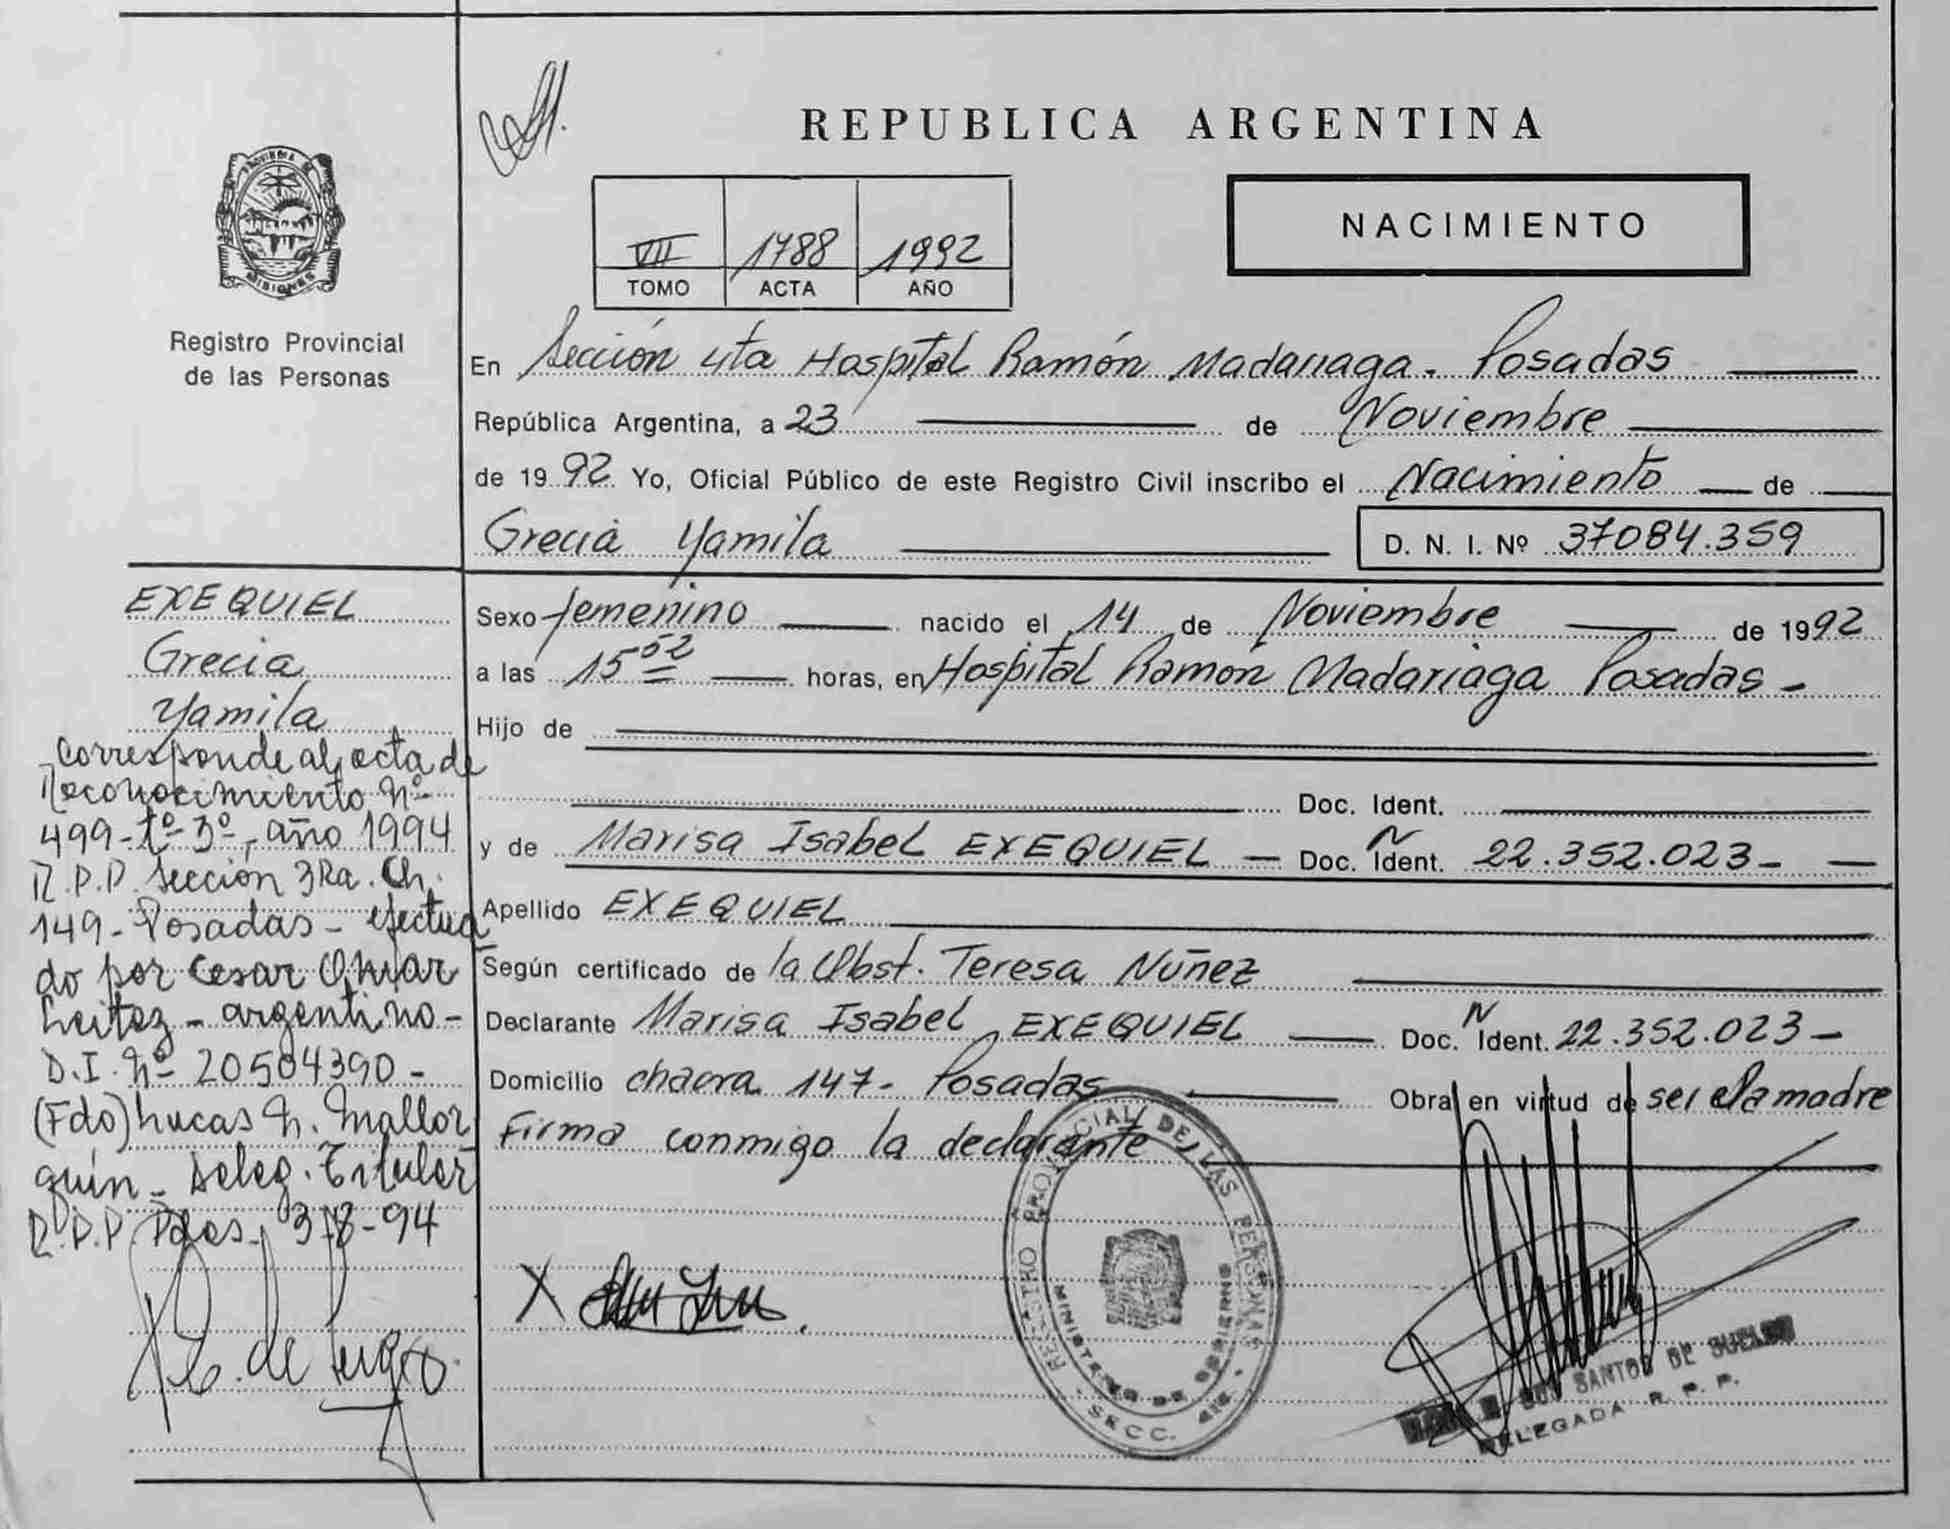 REPUBLICA ARGENTINA
NACIMIENTO
VII 1788 1992
TOMO ACTA AÑO
PROVINCIA DE
MISIONES
Registro Provincial
de las Personas
En Sección 4ta Hospital Ramón Madariaga. Posadas
República Argentina, a 23 de Noviembre
de 1992 Yo, Oficial Público de este Registro Civil inscribo el Nacimiento de
Grecia Yamila D. N. I. Nº 37084.359
Sexo femenino nacido el 14 de Noviembre de 1992
a las 15 52 horas, en Hospital Ramón Madariaga Posadas -
Hijo de
Doc. Ident.
y de Marisa Isabel EXEQUIEL - Doc. N Ident. 22.352.023-
Apellido EXEQUIEL
Según certificado de la Obst. Teresa Nuñez
Declarante Marisa Isabel EXEQUIEL Doc. N Ident. 22.352.023-
Domicilio chacra 147- Posadas Obra en virtud de ser la madre
Firma conmigo la declarante
EXEQUIEL
Grecia
Yamila
Corresponde al acta de
Reconocimiento Nº
499-tº 3º, año 1994
R.P.P. Sección 3Ra. Ch.
149- Posadas- efectua
do por Cesar Omar
Leitez - argentino-
D.I. Nº 20504390-
(Fdo) Lucas N. Mallor
quin - Deleg. Titular
R.P.P. Pdas. 3-8-94
REGISTRO PROVINCIAL DE LAS PERSONAS
MINISTERIO DE GOBIERNO
SECC. 4ta
SANTOS DE
DELEGADA R. P. P.